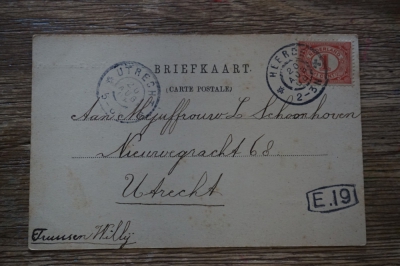 BRIEFKAART.
(CARTE POSTALE)
UTRECHT
HEER
2-3N
Aan Mejuffrouw L. Schoonhoven
Nieuwegracht 68
Utrecht
E.19
Willy